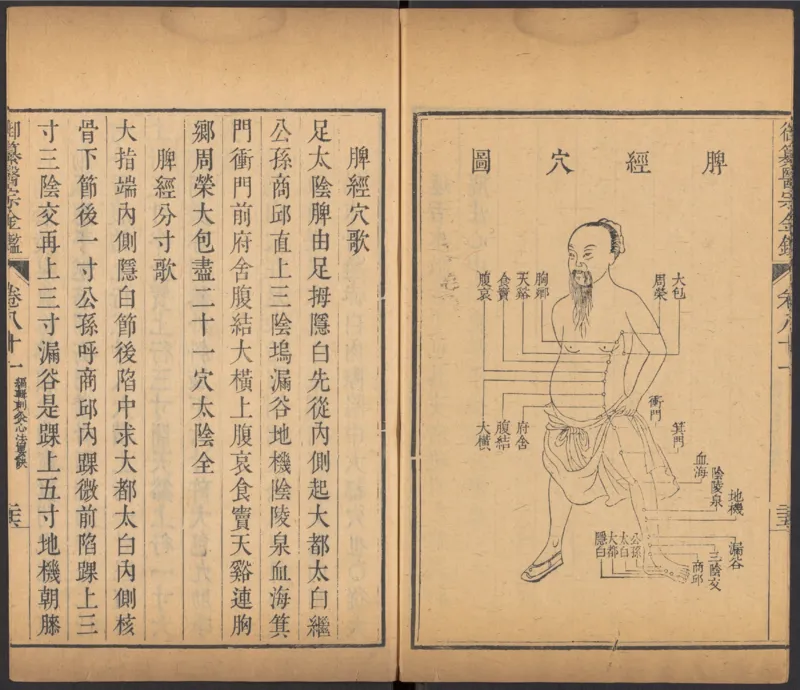 御纂醫宗金鑑
卷八十一
脾經穴圖
大包
周榮
胸鄉
天谿
食竇
腹哀
衝門
箕門
府舍
腹結
大橫
血海
陰陵泉
地機
漏谷
三陰交
商邱
公孫
太白
大都
隱白
脾經穴歌
足太陰脾由足拇隱白先從內側起大都太白繼
公孫商邱直上三陰塢漏谷地機陰陵泉血海箕
門衝門前府舍腹結大橫上腹哀食竇天谿連胸
鄉周榮大包盡二十一穴太陰全
脾經分寸歌
大指端內側隱白節後陷中求大都太白內側核
骨下節後一寸公孫呼商邱內踝微前陷踝上三
寸三陰交再上三寸漏谷是踝上五寸地機朝膝
御纂醫宗金鑑
卷八十一
編輯刺灸心法要訣